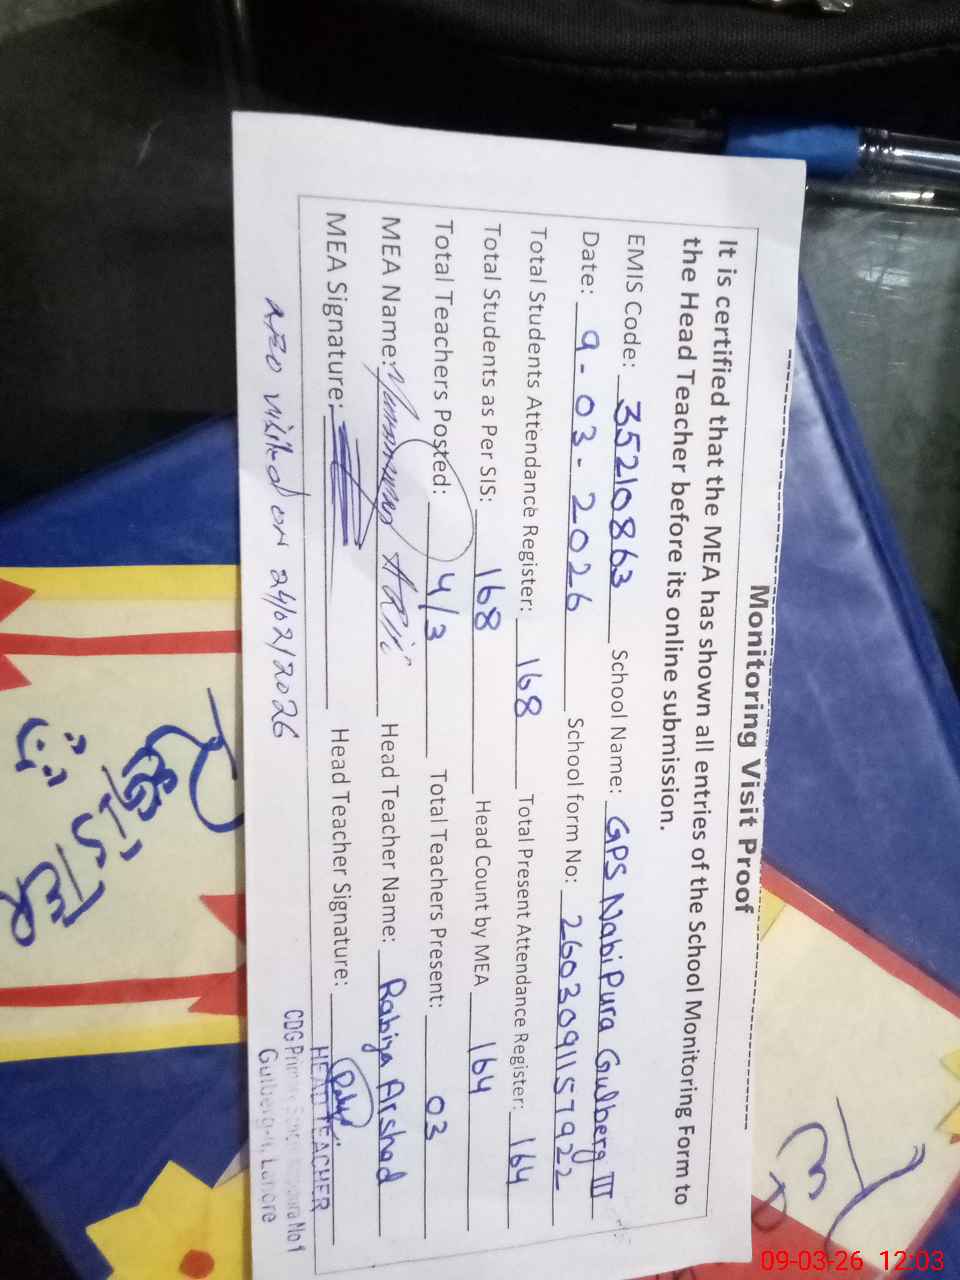 Monitoring Visit Proof
It is certified that the MEA has shown all entries of the School Monitoring Form to
the Head Teacher before its online submission.
EMIS Code: 35210863 School Name: GPS NabiPura Gulberg III
Date: 9-03-2026 School form No: 2603091157922
Total Students Attendance Register: 168 Total Present Attendance Register: 164
Total Students as Per SIS: 168 Head Count by MEA 164
Total Teachers Posted: 4/3 Total Teachers Present: 03
MEA Name: Head Teacher Name: Rabiya Arshad
MEA Signature: Head Teacher Signature:
HEAD TEACHER
CDG Primary School No 1
Lahore
AEO visited on 24/02/2026
REGISTER
09-03-26 12:03